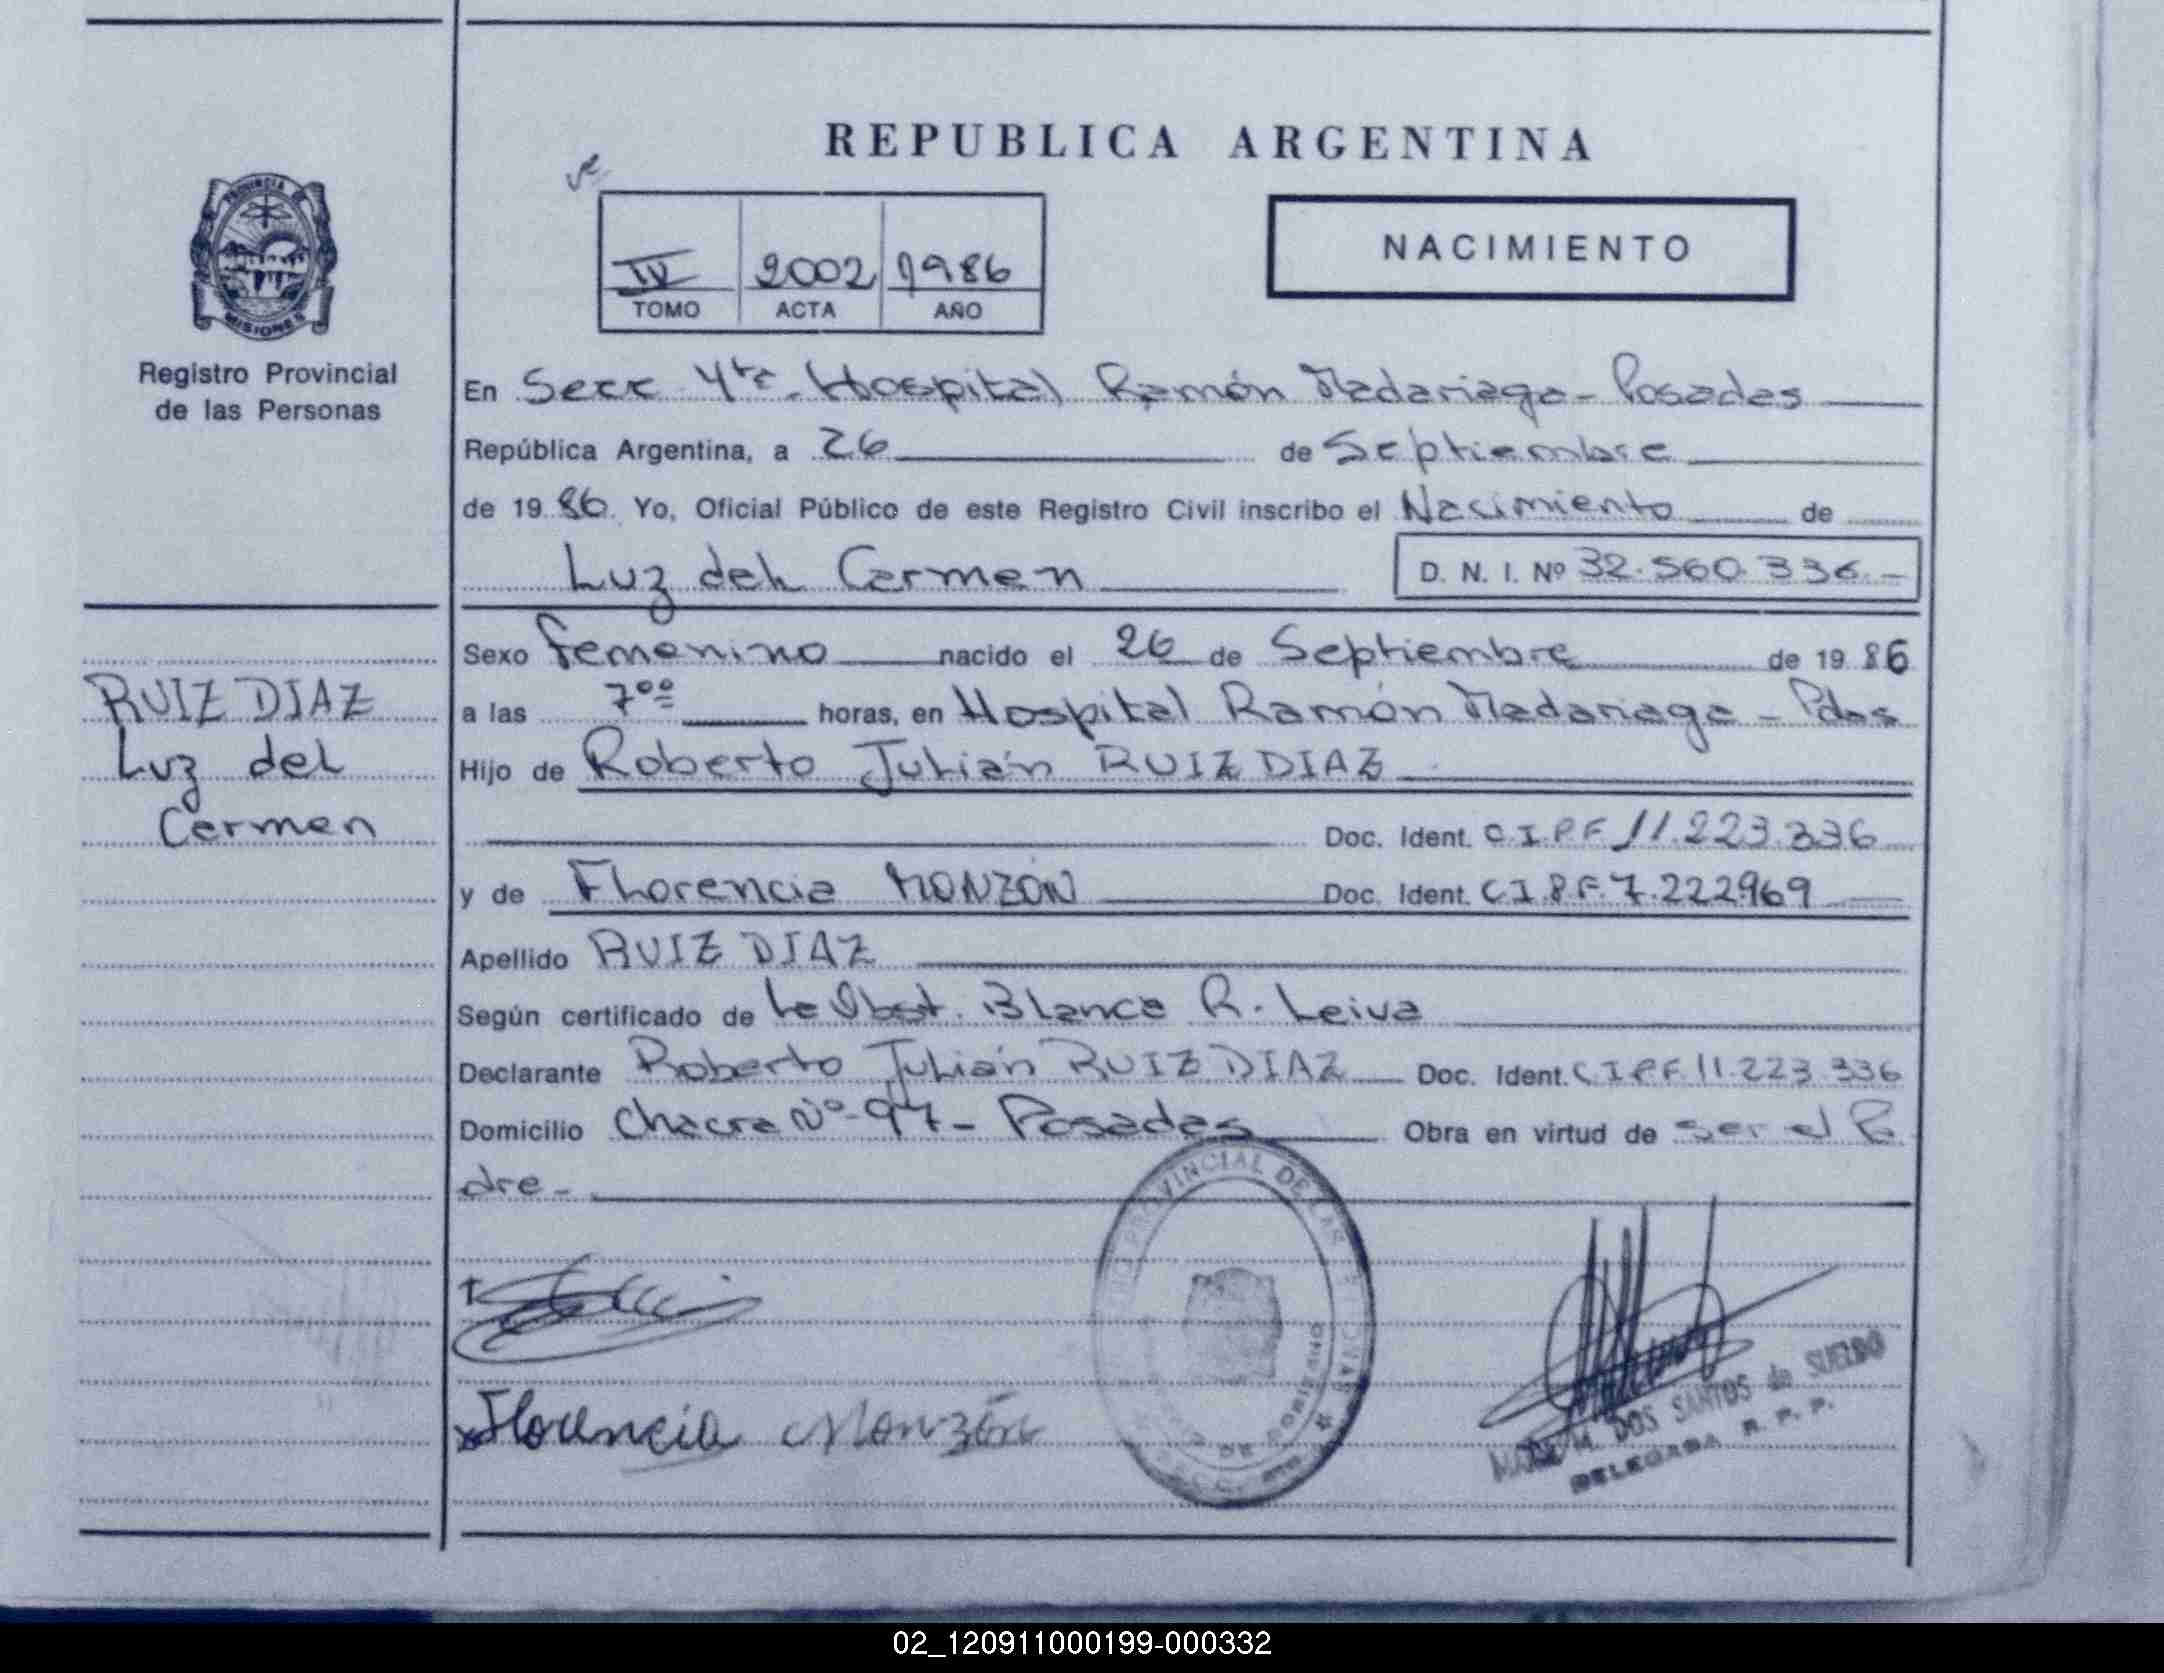 REPUBLICA ARGENTINA
IV 2002 1986
TOMO ACTA AÑO
NACIMIENTO
PROVINCIA DE
MISIONES
Registro Provincial
de las Personas
En Secc 4ta. Hospital Ramón Madariaga - Posadas
República Argentina, a 26 de Septiembre
de 1986. Yo, Oficial Público de este Registro Civil inscribo el Nacimiento de
Luz del Carmen D. N. I. Nº 32.560.336.-
Sexo femenino nacido el 26 de Septiembre de 1986
a las 7°° horas, en Hospital Ramón Madariaga - Pdas
Hijo de Roberto Julián RUIZ DIAZ
Doc. Ident. C.I.P.F. 11.223.336
y de Florencia MONZON Doc. Ident. C.I.P.F. 7.222969
Apellido RUIZ DIAZ
Según certificado de la Obst. Blanca R. Leiva
Declarante Roberto Julián RUIZ DIAZ Doc. Ident. C.I.P.F. 11.223.336
Domicilio Chacra Nº 97 - Posadas Obra en virtud de ser el Pa
dre -
RUIZ DIAZ
Luz del
Carmen
Florencia Monzón
PROVINCIAL DE LAS
M. DOS SANTOS de SUELDO
DELEGADA R. P. P.
02_120911000199-000332